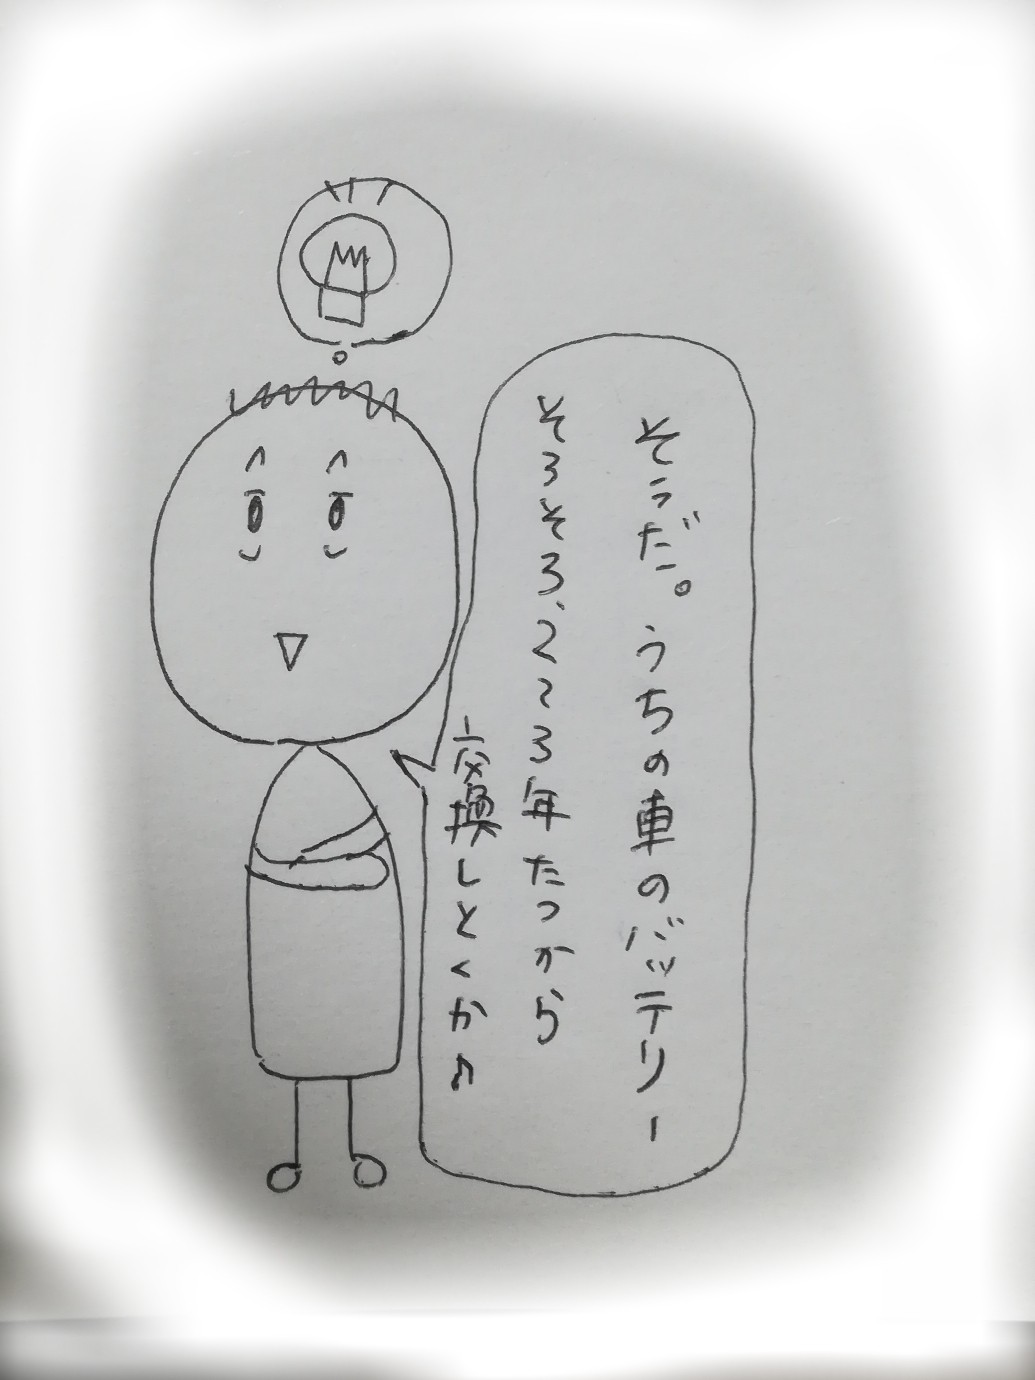 そうだ。うちの車のバッテリー
そろそろ、2～3年たつから
交換しとくか♪